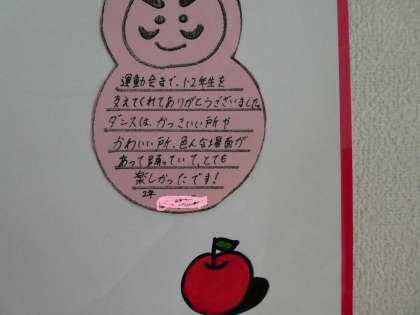 運動会まで、1・2年生を
支えてくれてありがとうございました。
ダンスは、かっこいい所や
かわいい所、色んな場面が
あって踊っていて、とても
楽しかったです!
2年